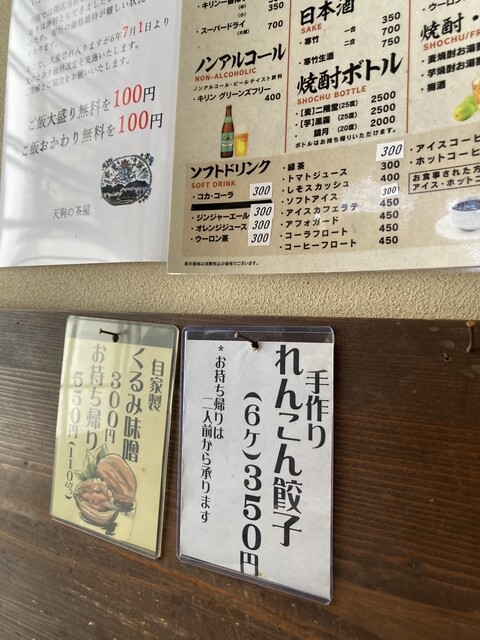 7月1日より
ご飯大盛り無料を100円
ご飯おかわり無料を100円
天狗の茶屋
・スーパードライ
(大) 700
(小) 350
ノンアルコール
NON-ALCOHOLIC
ノンアルコール・ビールテイスト飲料
・キリン グリーンズフリー 400
日本酒
SAKE
・寒竹 一合 350
二合 700
・寒竹生酒 750
焼酎ボトル
SHOCHU BOTTLE
・【麦】二階堂(25度) 2500
・【芋】黒霧(25度) 2500
・鏡月(20度) 2000
ボトルはお持ち帰りいただけます。
焼酎・
・麦焼酎お湯
・芋焼酎お湯
・梅酒
ソフトドリンク
SOFT DRINK
・コカ・コーラ 300
・ジンジャーエール 300
・オレンジジュース 300
・ウーロン茶 300
・緑茶 300
・トマトジュース 400
・しそカッシュ 300
・ソフトアイス
・アイスカフェラテ 450
・アフォガード 450
・コーラフロート 450
・コーヒーフロート 450
・アイスコーヒ
・ホットコーヒ
お食事された方
アイス・ホットコ
表示価格は消費税込の価格でございます。
自家製
くるみ味噌
300円
お持ち帰り
550円(110g)
手作り
れんこん餃子
(6ケ)350円
*お持ち帰りは
二人前から承ります